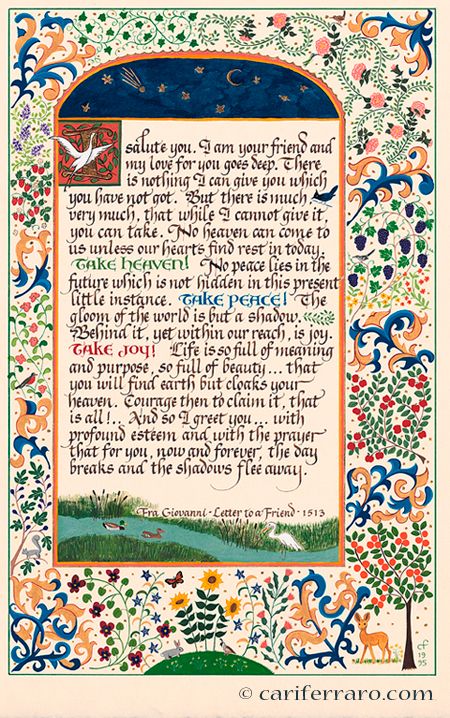 I salute you. I am your friend and
my love for you goes deep. There
is nothing I can give you which
you have not got. But there is much,
very much, that while I cannot give it,
you can take. No heaven can come to
us unless our hearts find rest in today.
TAKE HEAVEN! No peace lies in the
future which is not hidden in this present
little instance. TAKE PEACE! The
gloom of the world is but a shadow.
Behind it, yet within our reach, is joy.
TAKE JOY! Life is so full of meaning
and purpose, so full of beauty... that
you will find earth but cloaks your
heaven. Courage then to claim it, that
is all!.. And so I greet you... with
profound esteem and with the prayer
that for you, now and forever, the day
breaks and the shadows flee away.
Fra Giovanni · Letter to a Friend · 1513
CF
19
95
© cariferraro.com